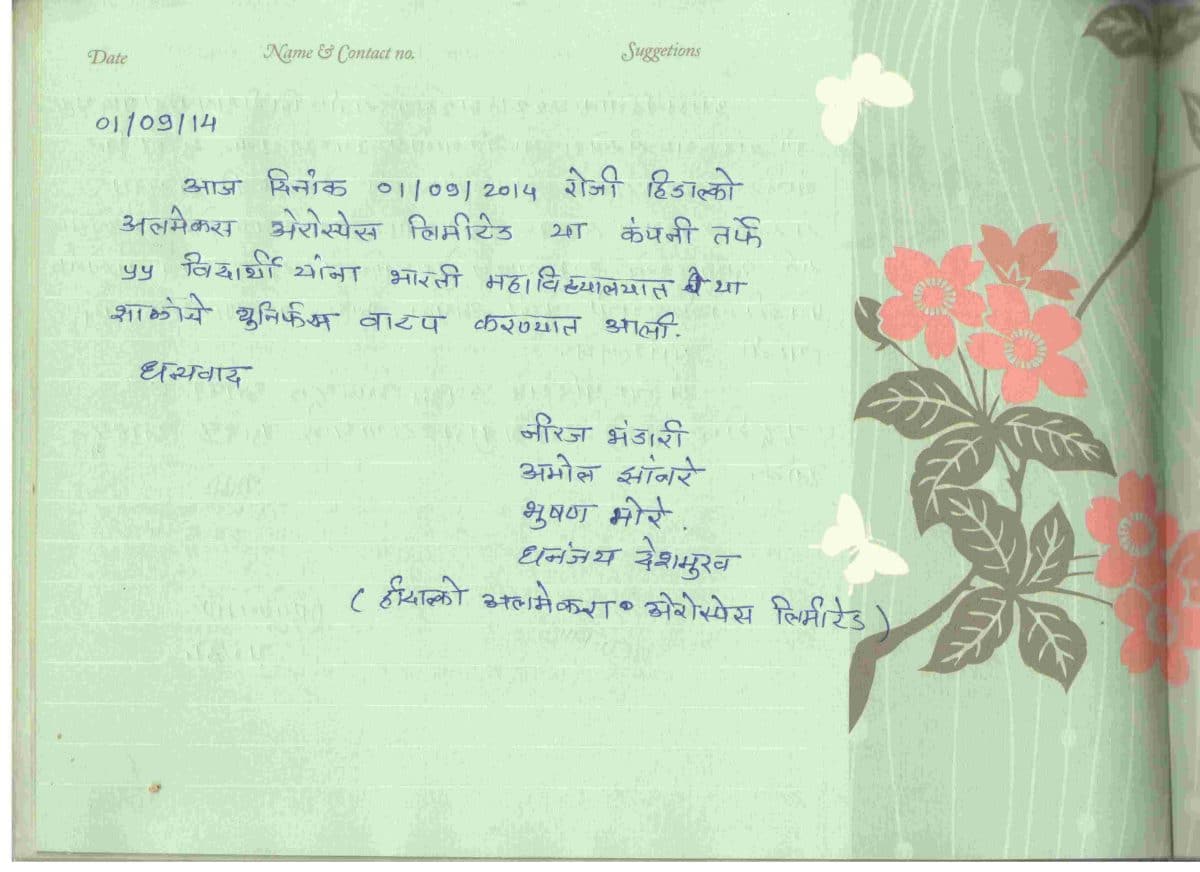 Date Name & Contact no. Suggetions
01/09/14
आज दिनांक 01/09/2014 रोजी हिंडाल्को
अलमेकस अेरोस्पेस लिमीटेड या कंपनी तर्फे
५५ विद्यार्थी यांना भारती महाविद्यालयात या
शाळांचे युनिर्फाम वाटप करण्यात आली.
धन्यवाद
नीरज भंडारी
अमोल झांनरे
भुषण मोरे.
धनंजय देशमुख
( अलमेकस अेरोस्पेस लिमीटेड )